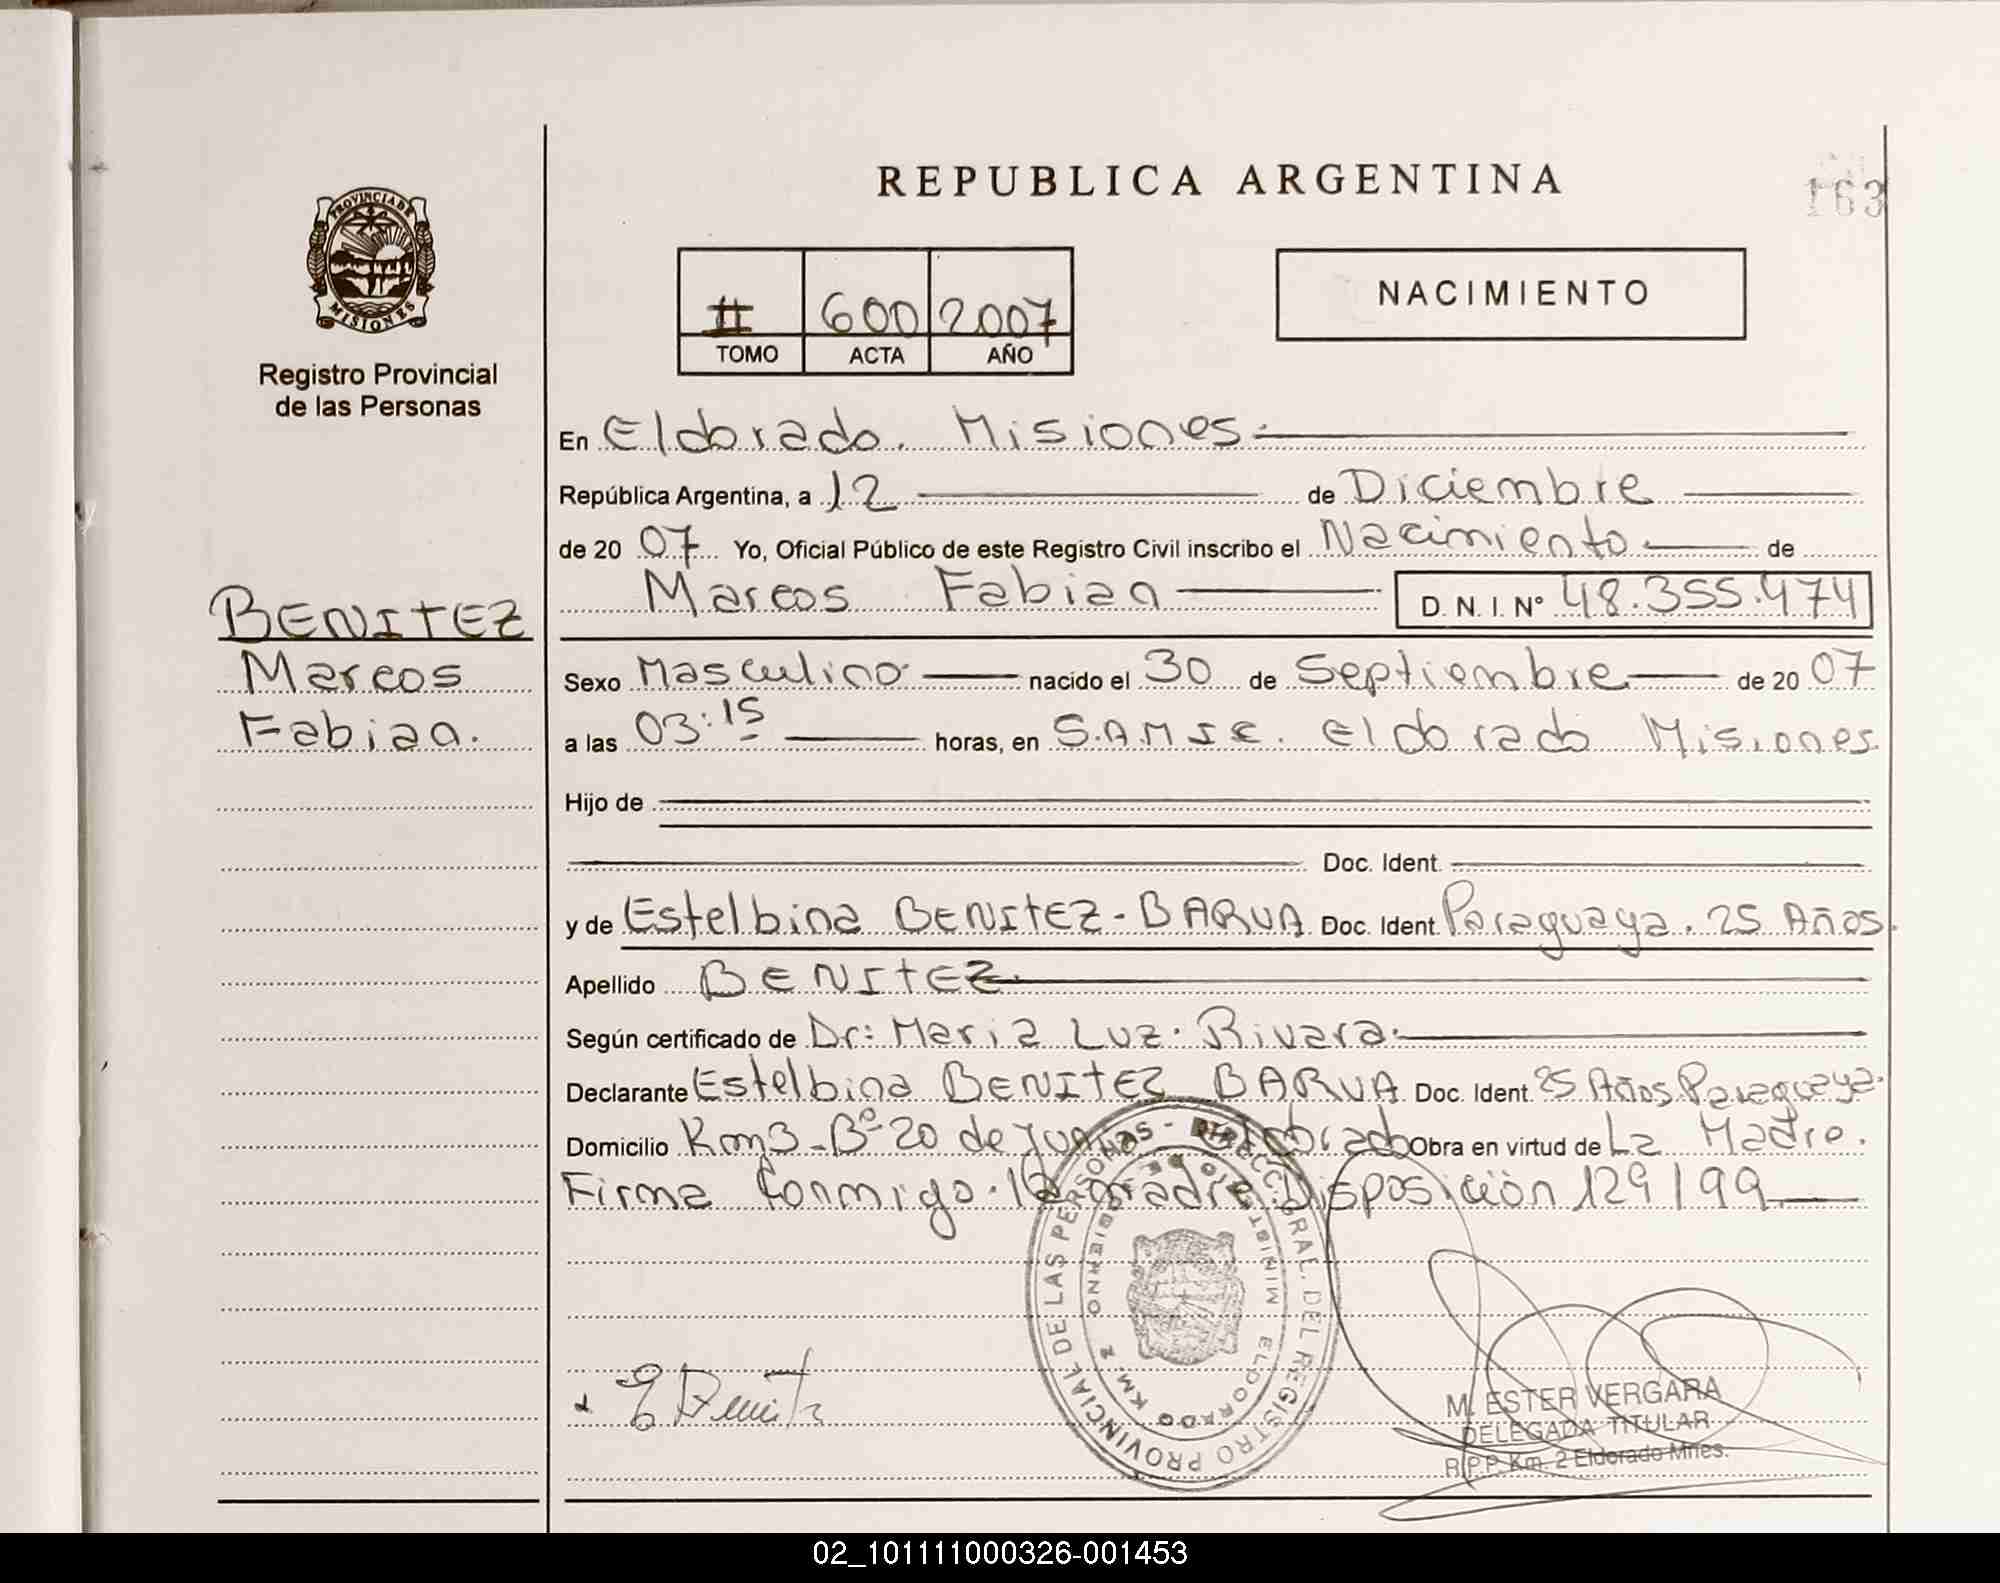 REPUBLICA ARGENTINA
163
PROVINCIA DE
MISIONES
Registro Provincial
de las Personas
# 600 2007
TOMO ACTA AÑO
NACIMIENTO
En Eldorado. Misiones.
República Argentina, a 12 de Diciembre
de 2007 Yo, Oficial Público de este Registro Civil inscribo el Nacimiento de
Marcos Fabian D. N. I. Nº 48.355.474
BENITEZ
Marcos
Fabian.
Sexo Masculino nacido el 30 de Septiembre de 2007
a las 03:15 horas, en S.A.M.I.C. Eldorado Misiones
Hijo de
Doc. Ident.
y de Estelbina BENITEZ - BARUA Doc. Ident Paraguaya. 25 Años.
Apellido BENITEZ.
Según certificado de Dr: Maria Luz. Rivara.
Declarante Estelbina BENITEZ BARUA Doc. Ident. 25 Años Paraguaya.
Domicilio Km3 - Bº 20 de Junio Eldorado Obra en virtud de La Madre.
Firma Conmigo. la madre Disposición 129/99
DIRECC. GRAL. DEL REGISTRO PROVINCIAL DE LAS PERSONAS -
MINISTERIO DE GOBIERNO
ELDORADO KM. 2
E Benitz
M. ESTER VERGARA
DELEGADA TITULAR
R.P.P. Km. 2 Eldorado Mnes.
02_101111000326-001453